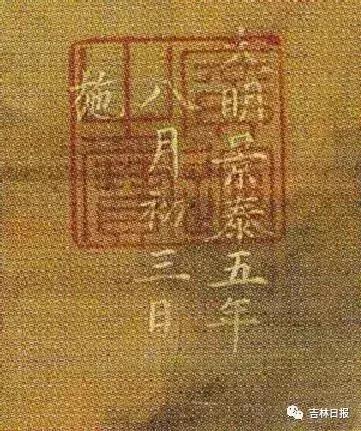 大明景泰五年
八月初三日
施
吉林日报